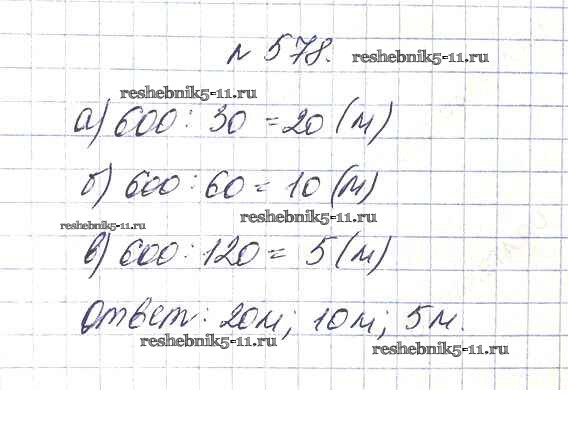 № 578. reshebnik5-11.ru
reshebnik5-11.ru
а) 600 : 30 = 20 (м)
б) 600 : 60 = 10 (м)
reshebnik5-11.ru
reshebnik5-11.ru
в) 600 : 120 = 5 (м)
Ответ: 20м; 10м; 5м.
reshebnik5-11.ru
reshebnik5-11.ru